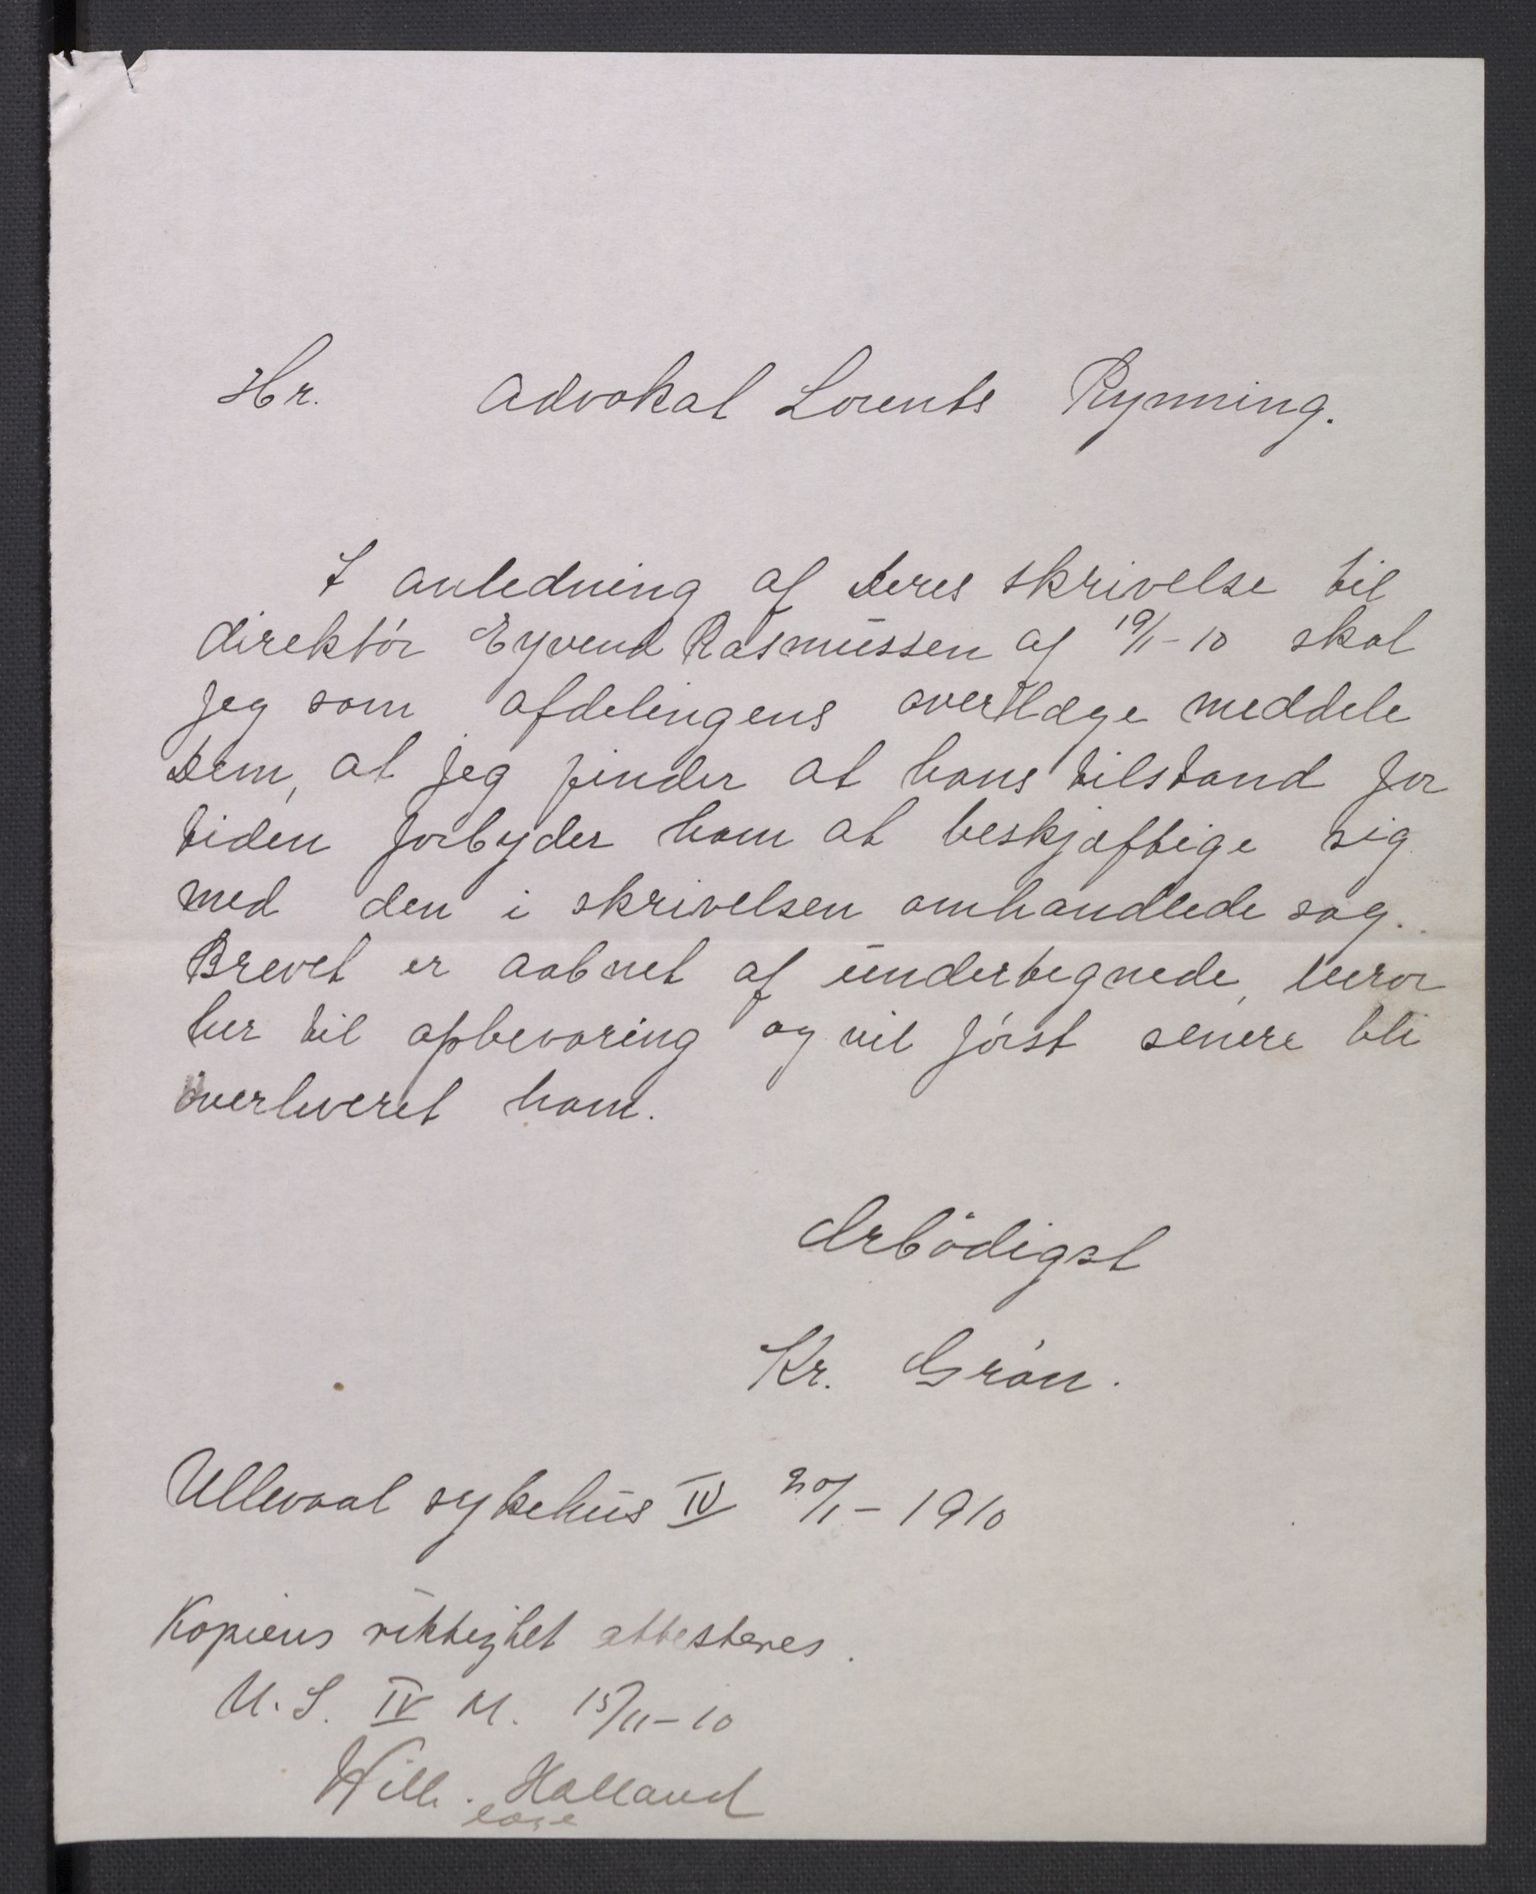 Hr. Advokat Lorents Rynning.
I anledning af Deres skrivelse til
direktør Eyvend Rasmussen af 19/1-10 skal
jeg som afdelingens overlæge meddele
Dem, at jeg finder at hans tilstand for
tiden forbyder ham at beskjæftige sig
med den i skrivelsen omhandlede sag.
Brevet er aabnet af undertegnede, beror
her til opbevaring og vil først senere bli
overleveret ham.
Ærbödigst
Kr. Grøn.
Ullevaal sykehus IV 20/1-1910
Kopiens riktighet attesteres.
U. S. IV M. 15/11-10
Wilh. Holland
læge